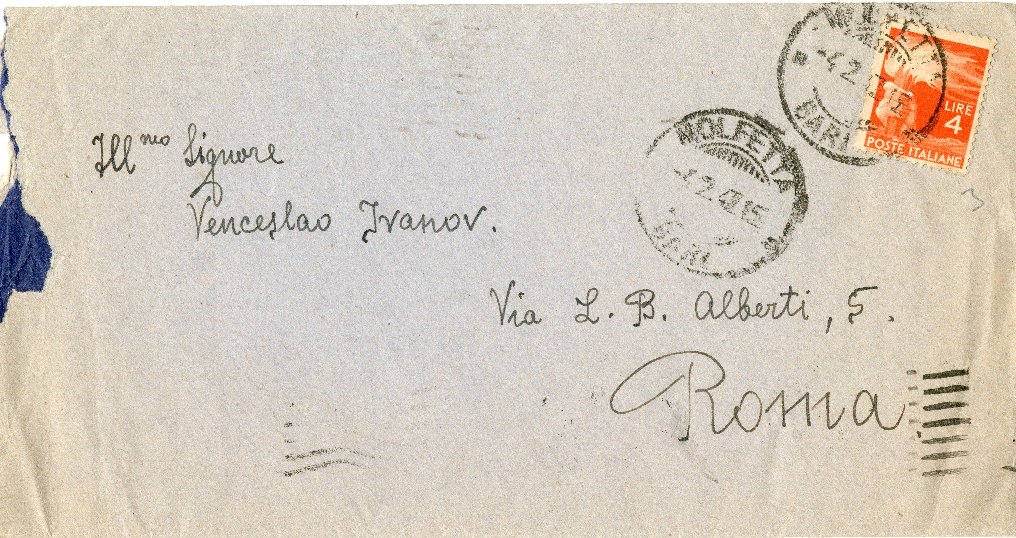 MOLFETTA
BARI
LIRE
4
POSTE ITALIANE
MOLFETTA
BARI
3
Ill mo Signore
Venceslao Ivanov.
Via L. B. Alberti, 5.
Roma